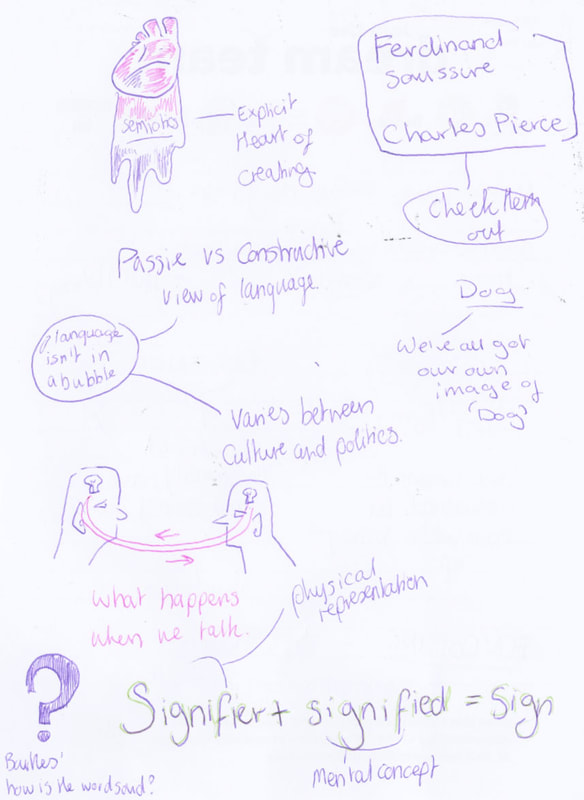 semiotics
Explicit
Heart of
Creating.
Ferdinand
Saussure
Charles Pierce
Check them
out
Passive vs Constructive
view of language.
language
isn't in
a bubble
Varies between
Culture and politics.
Dog
We've all got
our own
image of
'Dog'
What happens
when we talk.
physical
representation
Signifier + signified = Sign
Mental concept
?
Barthes'
how is the word said?